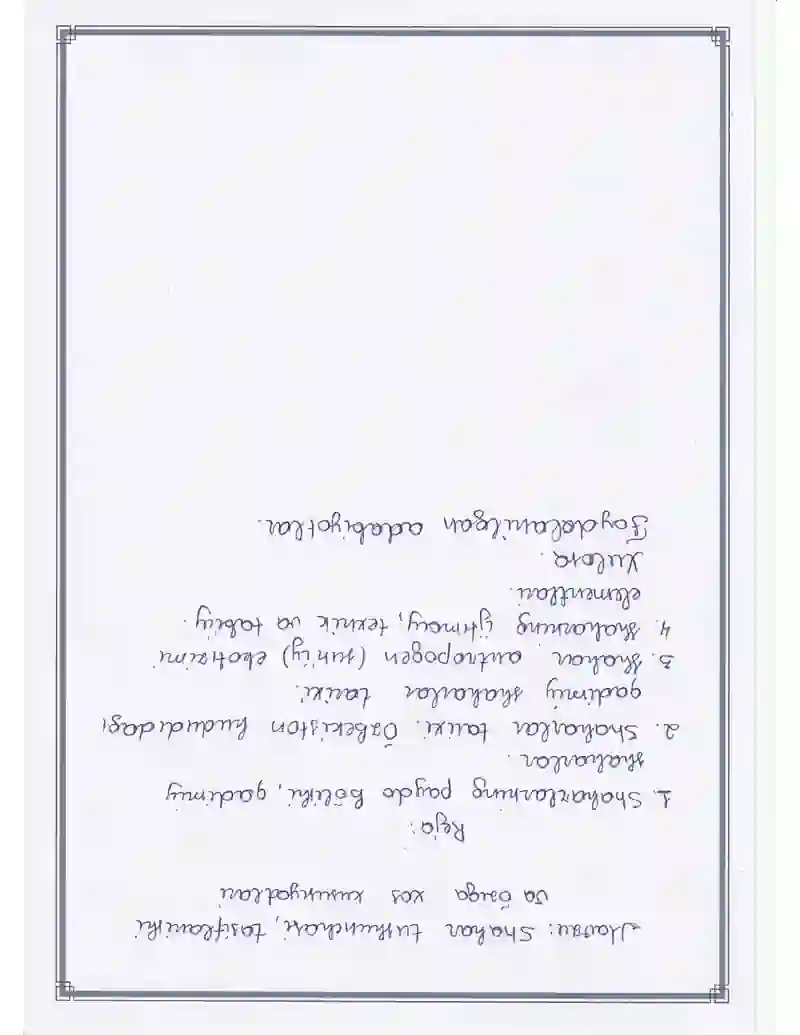 Mavzu: Shahar tushunchasi, tasiflanishi
va õziga xos xususiyatlari
Reja:
1. Shaharlarning paydo bõlishi, qadimiy
shaharlar.
2. Shaharlar tarixi. Õzbekiston hududidagi
qadimiy shaharlar tarixi.
3. Shahar antropogen (sun'iy) ekotizimi
4. Shaharning ijtimoiy, texnik va tabiiy.
elementlari.
Xulosa.
Foydalanilgan adabiyotlar.